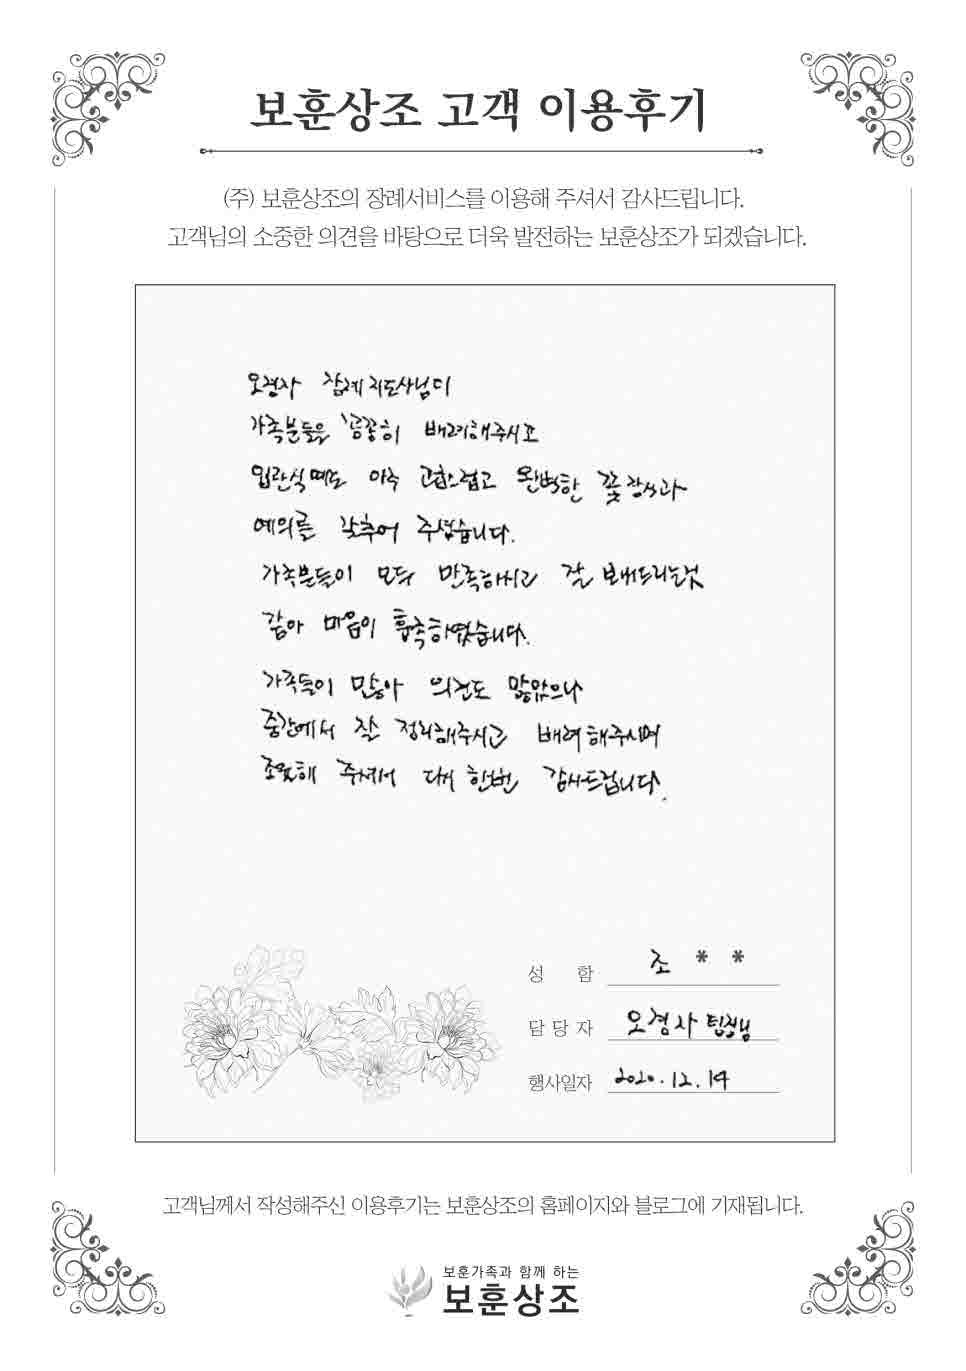 보훈상조 고객 이용후기
(주) 보훈상조의 장례서비스를 이용해 주셔서 감사드립니다.
고객님의 소중한 의견을 바탕으로 더욱 발전하는 보훈상조가 되겠습니다.
장례지도사님이
가족분들을 꼼꼼히 배려해주시고
입관식때도 아주 고급스럽고 완벽한 꽃장식과
예의를 갖추어 주셨습니다.
가족분들이 모두 만족하시고 잘 보내드리는것
같아 마음이 흡족하였습니다.
가족들이 많아 의견도 많았으나
중간에서 잘 정리해주시고 배려해주시며
조언해 주셔서 다시 한번 감사드립니다.
성 함 조 * *
담 당 자 팀장님
행사일자 2020. 12. 14
고객님께서 작성해주신 이용후기는 보훈상조의 홈페이지와 블로그에 기재됩니다.
보훈가족과 함께 하는
보훈상조